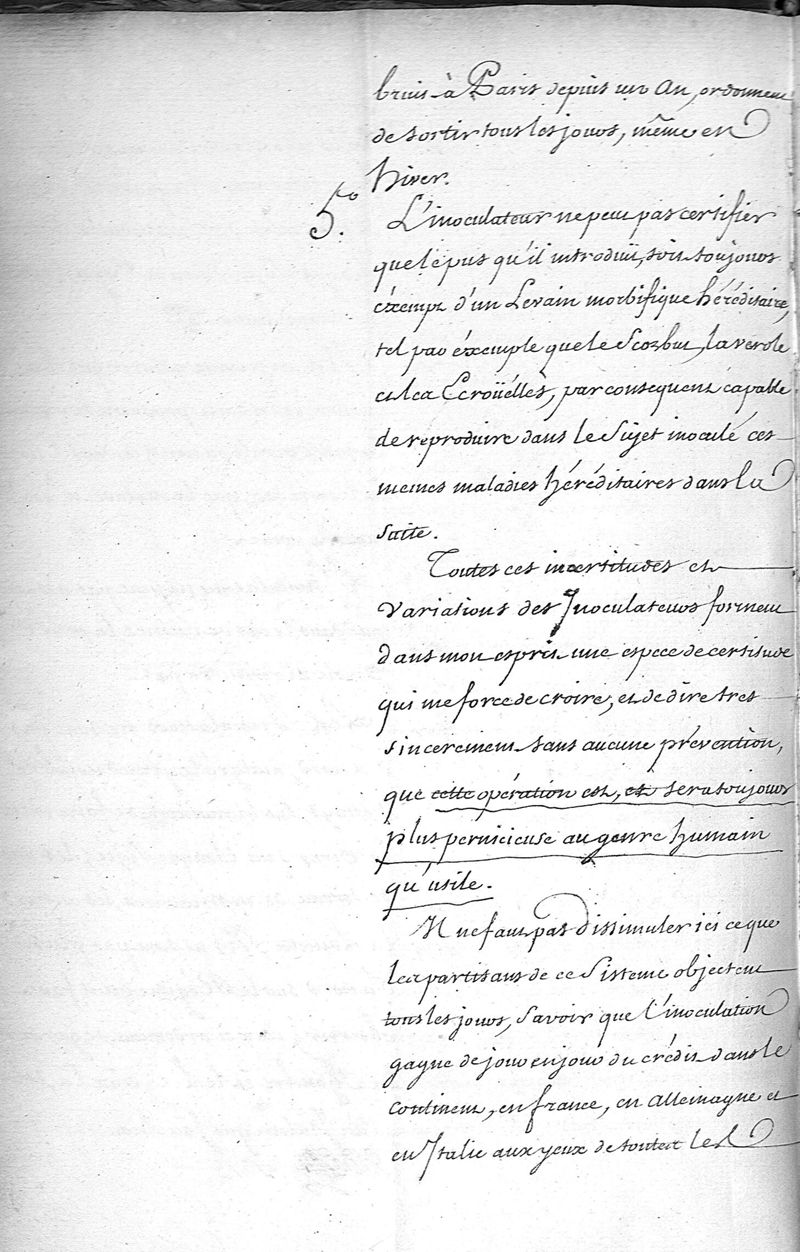 bruit à Paris depuis un An, ordonnent
de sortir tous les jours, même en
hiver.
5.° L'inoculateur ne peut pas certifier
que le pus qu'il introduit, soit toujours
éxempt d'un Levain morbifique héréditaire,
tel par éxemple que le Scorbut, la verole
et les Ecroüelles, par consequent capable
de reproduire dans le Sujet inoculé ces
memes maladies héréditaires dans la
suite.
Toutes ces incertitudes et
variations des Inoculateurs forment
dans mon esprit une espece de certitude
qui me force de croire, et de dire tres
sincerement sans aucune prévention,
que cette opération est, et sera toujours
plus pernicieuse au genre humain
qu'utile.
Il ne faut pas dissimuler ici ce que
les partisans de ce Sisteme objectent
tous les jours, savoir que l'inoculation
gagne de jour en jour du crédit dans le
continent, en france, en allemagne et
en Italie aux yeux de toutes les